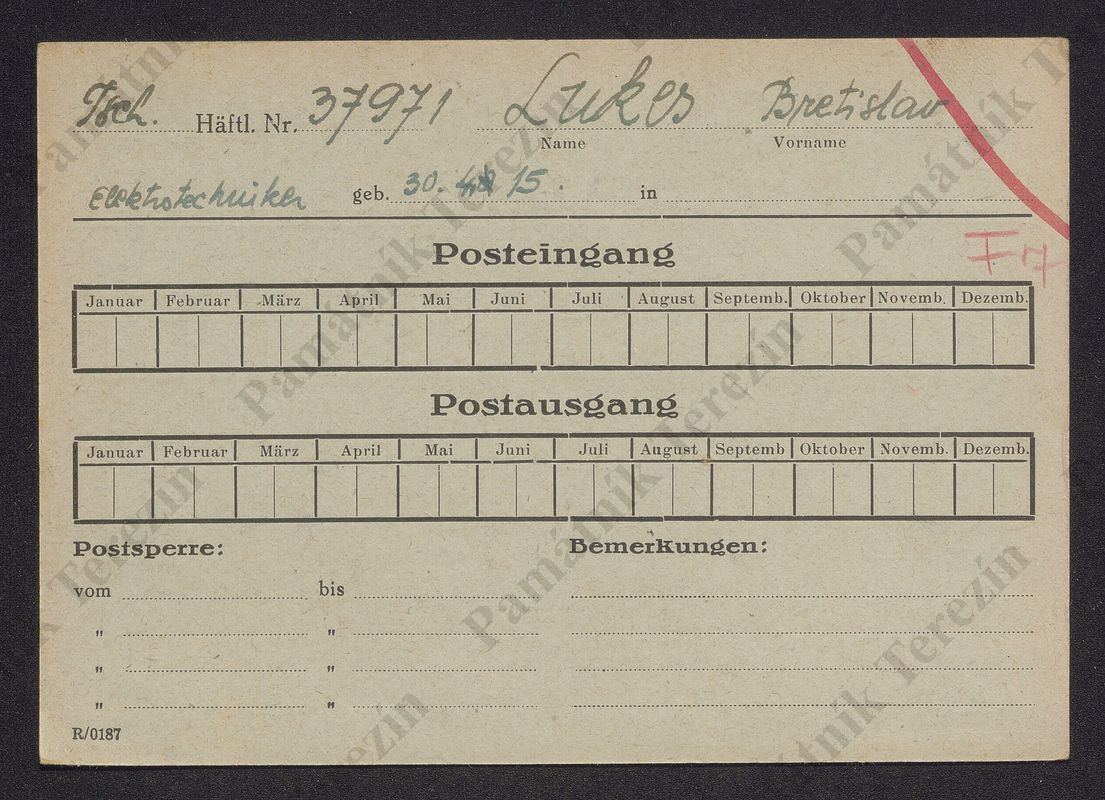 Tsch. Häftl. Nr. 37971 Lukes Bretislav
Name Vorname
Elektrotechniker geb. 30. 15. in
F 17
Posteingang
Januar Februar März April Mai Juni Juli August Septemb. Oktober Novemb. Dezemb.
Postausgang
Januar Februar März April Mai Juni Juli August Septemb Oktober Novemb. Dezemb.
Postsperre: Bemerkungen:
vom bis
" "
" "
" "
R/0187
Památník Terezín